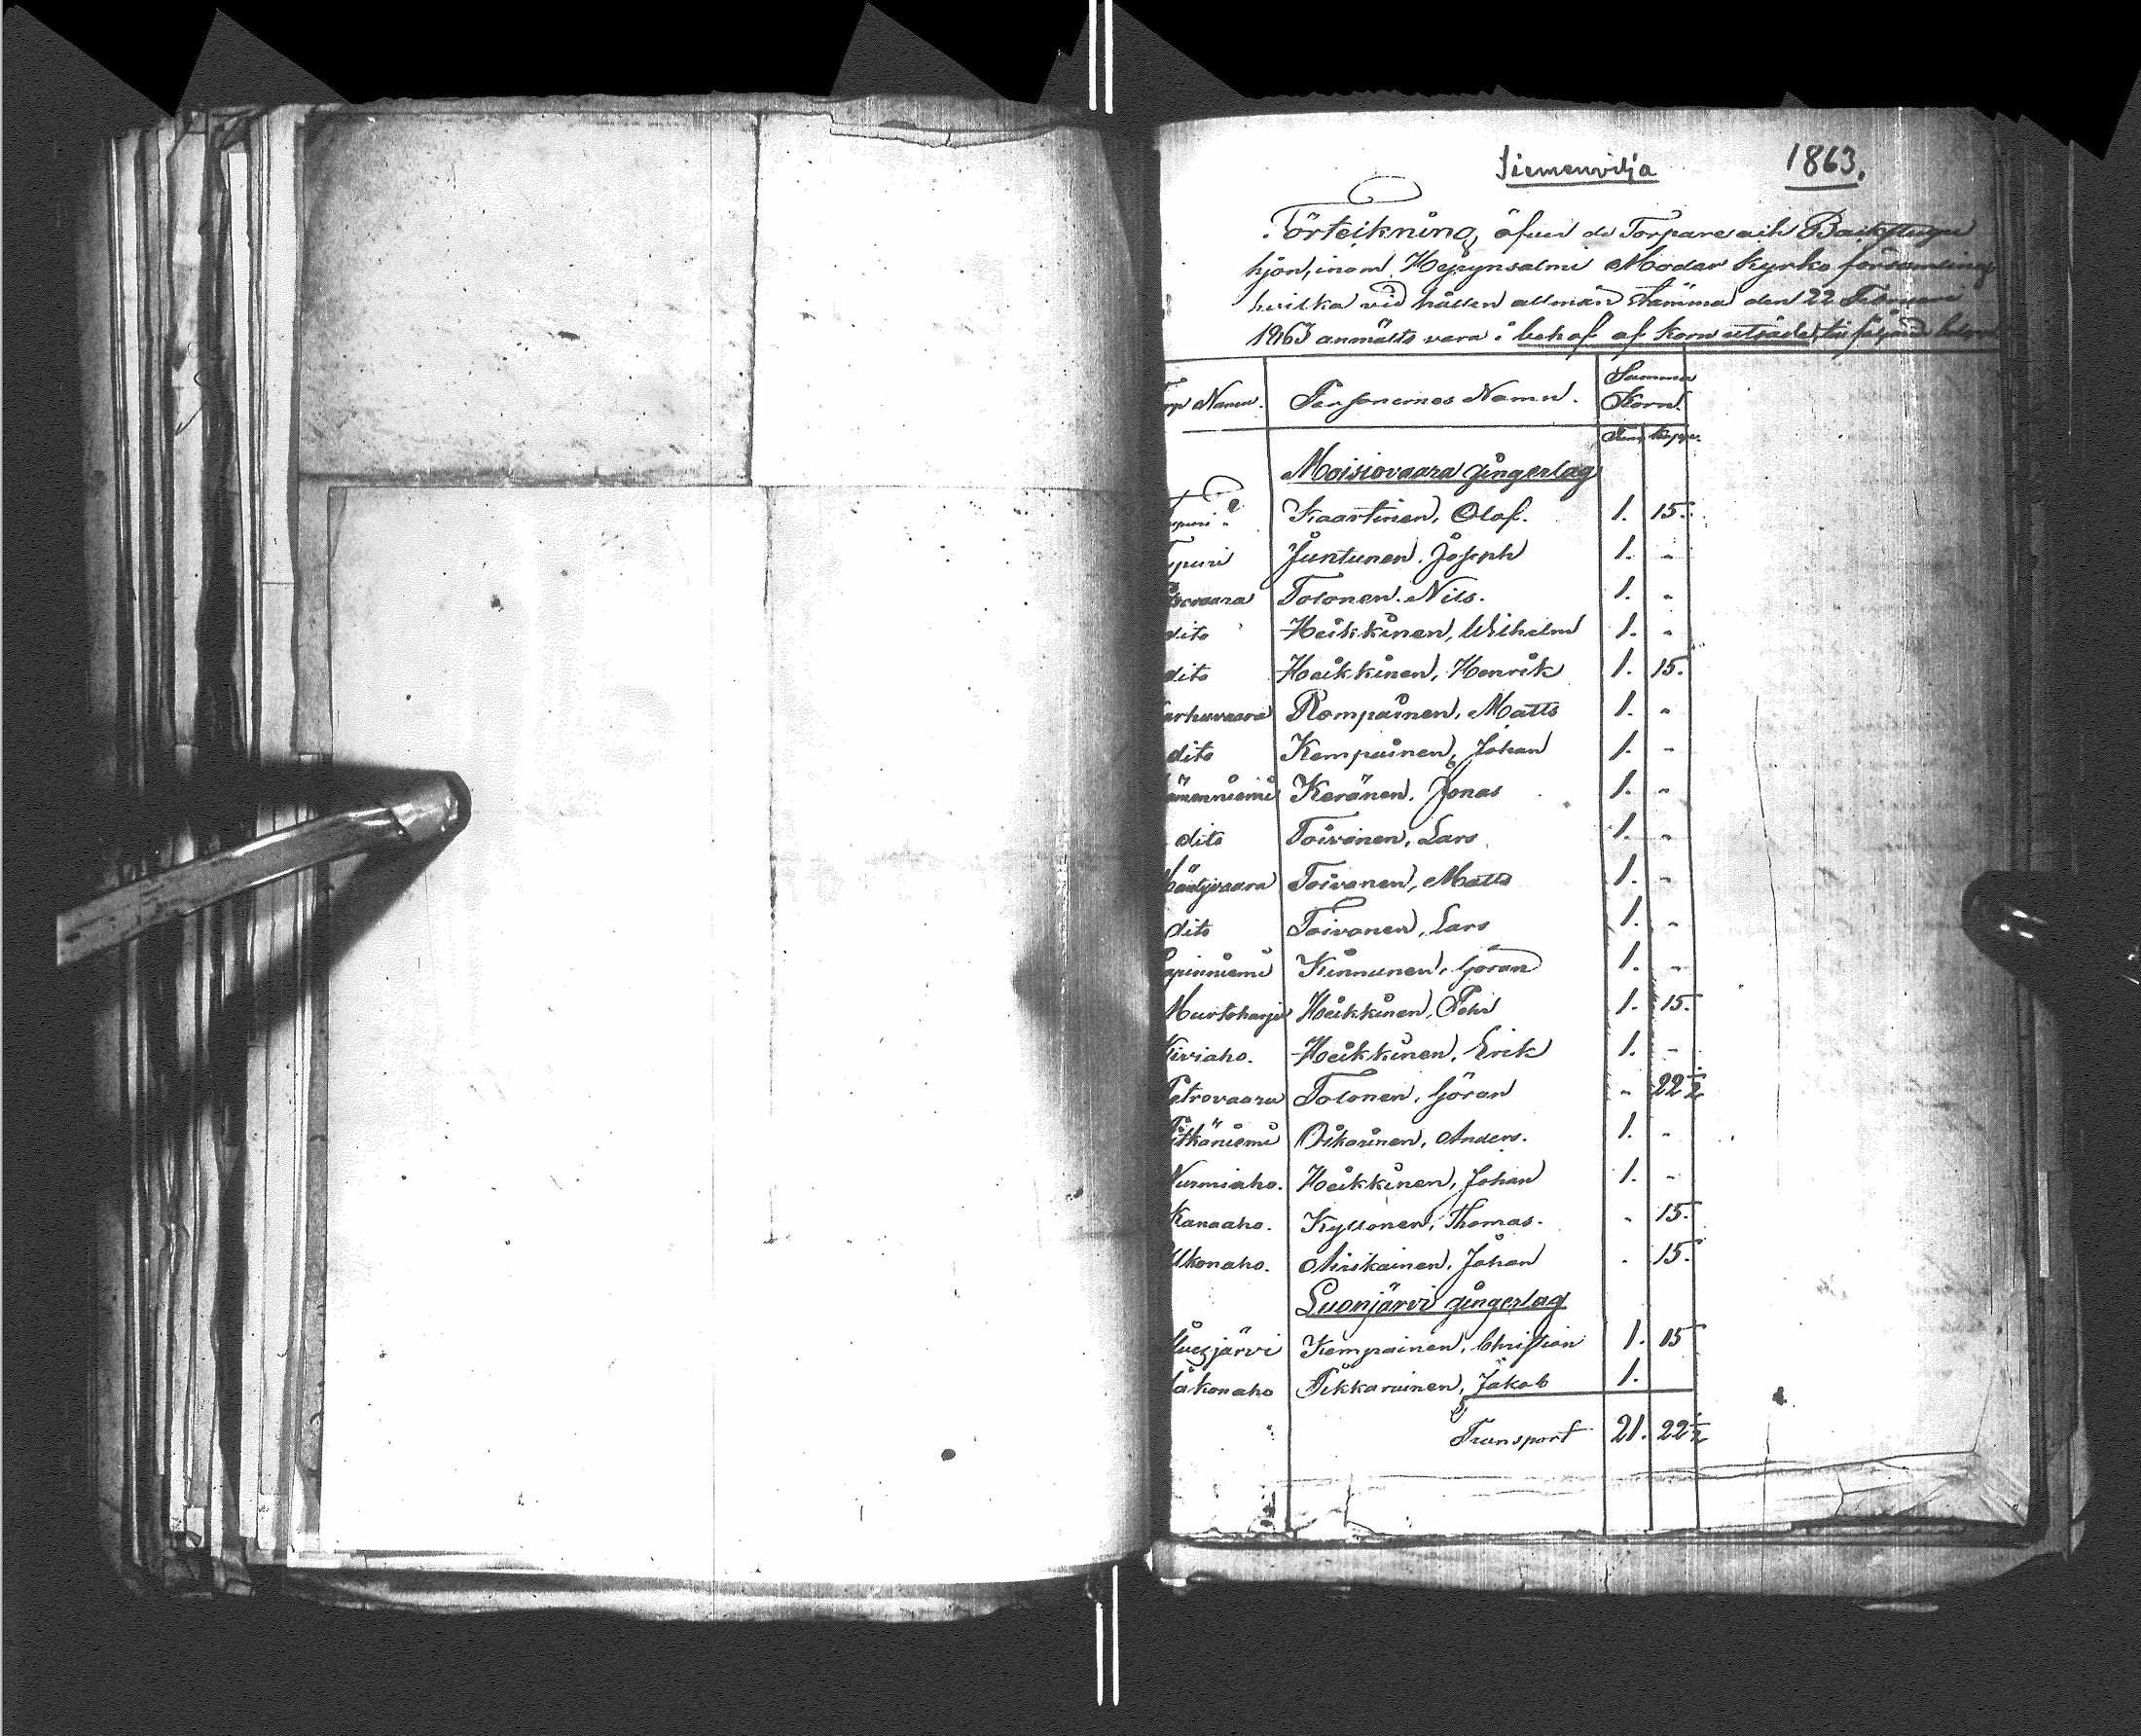 Siemenvilja 1863.
Förteikning öfver de Torpare och Backstugu
hjon, inom Hyrynsalmi Moder Kyrko församling
hvilka vid hållen allmän Stämma den 22 Februari
1863 anmälts vara i behof af Korn utsäde, till
Namn. Personernes Namn. Summa Korn.
Tun. Kappe.
Moisiovaara gingerlag
Kaartinen, Olof. 1. 15.
Juntunen, Joseph 1. "
Tolonen, Nils. 1. "
dito Heikkinen, Wilhelm 1. "
dito Heikkinen, Henrik 1. 15.
arhuvaara Rompainen, Matts 1. "
dito Kempainen, Johan 1. "
ämenniemi Keränen, Jonas 1. "
dito Toivonen, Lars 1. "
Mäntyvaara Toivonen, Matts 1. "
dito Toivonen, Lars 1. "
apinniemi Kinnunen, Göran 1. "
Murtoharju Heikkinen, Pehr 1. 15.
Kiviaho. Heikkinen, Erik 1. "
Petrovaara Tolonen, Göran " 22½
Pitkäniemi Oikarinen, Anders. 1. "
Nurmiaho. Heikkinen, Johan 1. "
Kanaaho. Kyllönen, Thomas. " 15.
Ukonaho. Airikainen, Johan " 15.
Luonjärvi gingerlag
järvi Kempainen, Christian 1. 15
akonaho Pikkarainen, Jakob 1.
Transport 21. 22½